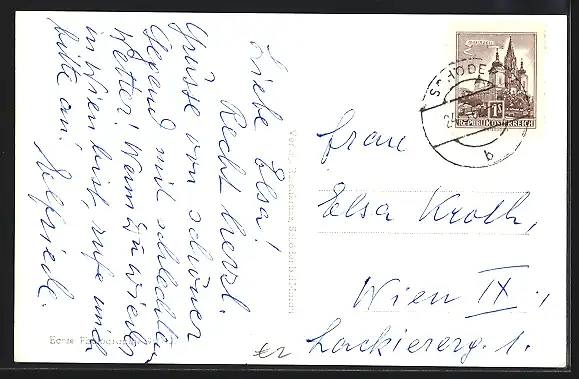 Liebe Elsa!
Recht herzl.
Grüsse von schöner
Gegend mit schlechten
Wetter! Wenn Du wieder
in Wien bist, rufe mich
bitte an! Elfriede.
MARIAZELL
1S
REPUBLIK ÖSTERREICH
SCHÖDE
b
Frau
Elsa Kroth,
Wien IX.,
Lackiererg. 1.
Echte